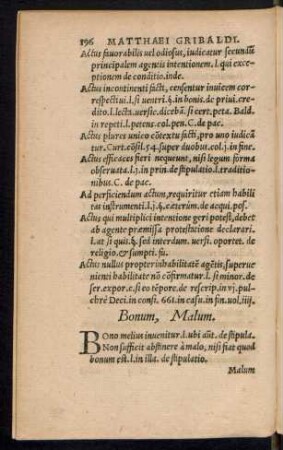 196 MATTHAEI GRIBALDI.
Actus fauorabilis uel odiosus, iudicatur secundũ
principalem agentis intentionem. l. qui exce-
ptionem de conditio. inde.
Actus incontinenti facti, censentur inuicem cor-
respectiui. l. si uentri. §. in bonis. de priui. cre-
dito. l. lecta. uersic. dicebã. si cert. peta. Bald.
in repeti. l. petens. col. pen. C. de pac.
Actus plures unico cõtextu facti, pro uno iudicã
tur. Curt. cõsil. 54. super duobus. col. j. in fine.
Actus efficaces fieri nequeunt, nisi legum forma
obseruata. l. j. in prin. de stipulatio. l. traditio-
nibus. C. de pac.
Ad perficiendum actum, requiritur etiam habili
tas instrumenti. l. j. §. cæterum. de acqui. pos.
Actus qui multiplici intentione geri potest, debet
ab agente præmissa protestatione declarari.
l. at si quis. §. sed interdum. uersi. oportet. de
religio. & sumpti. fu.
Actus nullus propter inhabilitatẽ agẽtis, superue
nienti habilitate nõ cõfirmatur. l. si minor. de
ser. expor. c. si eo tẽpore. de rescrip. in vj. pul-
chrè Deci. in consi. 661. in casu. in fin. uol. iiij.
Bonum, Malum.
Bono melius inuenitur. l. ubi aũt. de stipula.
Non sufficit abstinere à malo, nisi fiat quod
bonum est. l. in illa. de stipulatio.
Malum